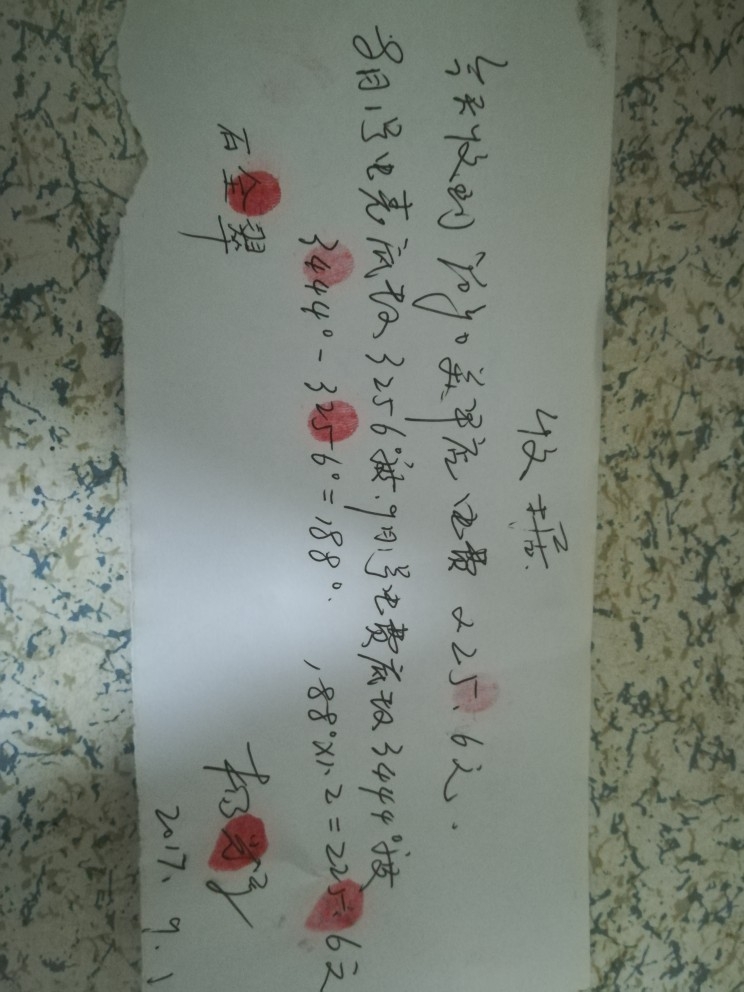 收据.
今天收到 美零店 电费 225.6元.
8月1号电表底数3256°度.9月1号电费底数3444°度
3444°-3256°=188°. 188°×1.2=225.6元
石金翠
2017.9.1